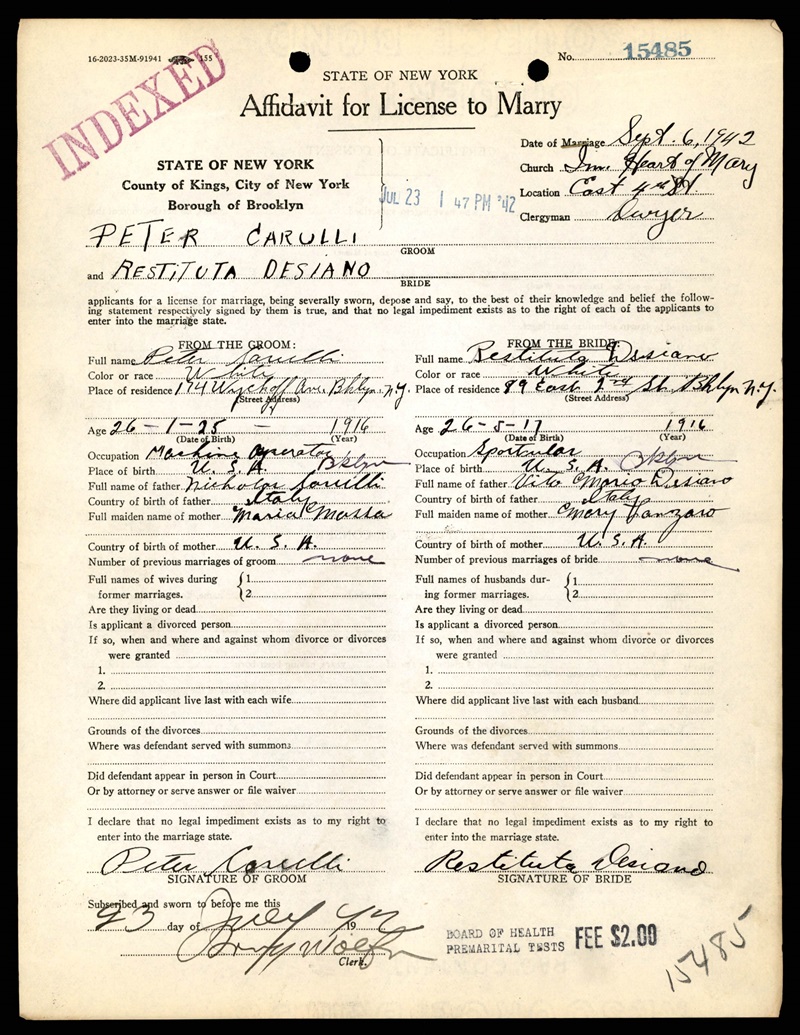 16-2023-35M-91941 155
No. 15485
INDEXED
STATE OF NEW YORK
Affidavit for License to Marry
STATE OF NEW YORK
County of Kings, City of New York
Borough of Brooklyn
JUL 23 1 47 PM '42
Date of Marriage Sept. 6, 1942
Church Imm. Heart of Mary
Location East 4th St
Clergyman Dwyer
PETER CARULLI
GROOM
and RESTITUTA DESIANO
BRIDE
applicants for a license for marriage, being severally sworn, depose and say, to the best of their knowledge and belief the follow-
ing statement respectively signed by them is true, and that no legal impediment exists as to the right of each of the applicants to
enter into the marriage state.
FROM THE GROOM:
Full name Peter Carulli
Color or race White
Place of residence 174 Wyckoff Ave. Bklyn. N.Y.
(Street Address)
Age 26 - 1 - 25 - 1916
(Date of Birth) (Year)
Occupation Machine Operator
Place of birth U. S. A. Bklyn
Full name of father Nicholas Carulli
Country of birth of father Italy
Full maiden name of mother Maria Massa
Country of birth of mother U. S. A.
Number of previous marriages of groom none
Full names of wives during { 1
former marriages. { 2
Are they living or dead
Is applicant a divorced person
If so, when and where and against whom divorce or divorces
were granted
1.
2.
Where did applicant live last with each wife
Grounds of the divorces
Where was defendant served with summons
Did defendant appear in person in Court
Or by attorney or serve answer or file waiver
I declare that no legal impediment exists as to my right to
enter into the marriage state.
Peter Carulli
SIGNATURE OF GROOM
FROM THE BRIDE:
Full name Restituta Desiano
Color or race White
Place of residence 89 East 2nd St. Bklyn N.Y.
(Street Address)
Age 26 - 5 - 17 1916
(Date of Birth) (Year)
Occupation
Place of birth U. S. A. Bklyn
Full name of father Vito Mario Desiano
Country of birth of father Italy
Full maiden name of mother Mary Panzaro
Country of birth of mother U. S. A.
Number of previous marriages of bride none
Full names of husbands dur- { 1
ing former marriages. { 2
Are they living or dead
Is applicant a divorced person
If so, when and where and against whom divorce or divorces
were granted
1.
2.
Where did applicant live last with each husband
Grounds of the divorces
Where was defendant served with summons
Did defendant appear in person in Court
Or by attorney or serve answer or file waiver
I declare that no legal impediment exists as to my right to
enter into the marriage state.
Restituta Desiano
SIGNATURE OF BRIDE
Subscribed and sworn to before me this
23 day of July 1942
Clerk.
BOARD OF HEALTH
PREMARITAL TESTS FEE $2.00
15485